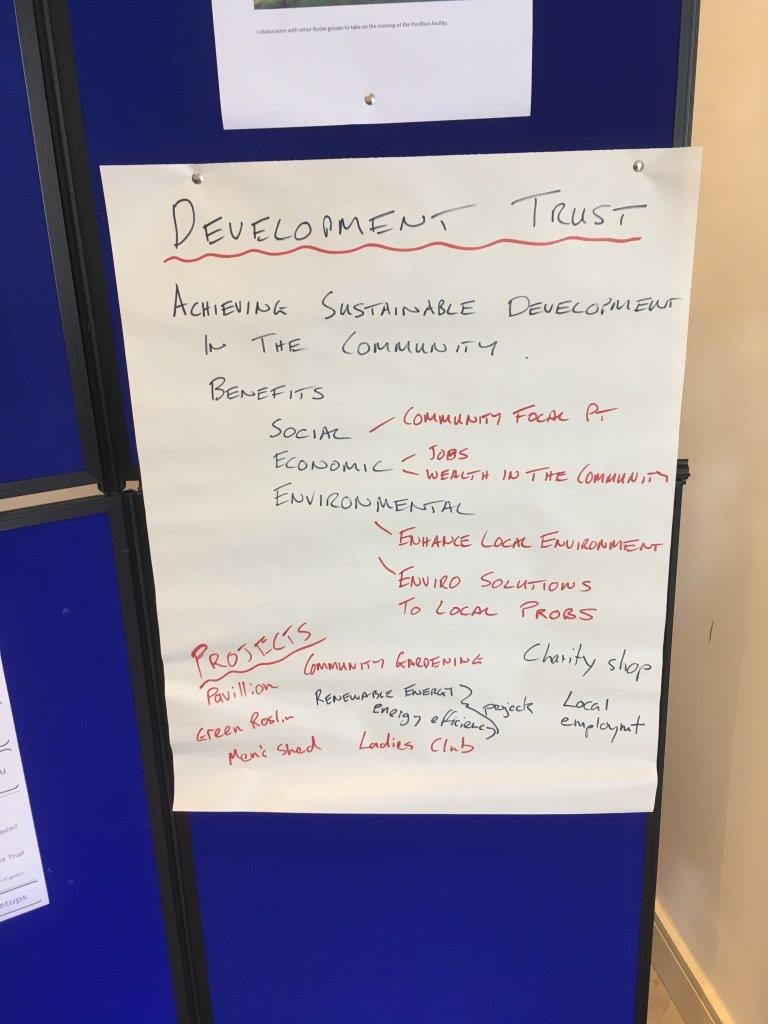 Collaboration with other Roslin groups to take on the running of the Pavillion facility.
DEVELOPMENT TRUST
ACHIEVING SUSTAINABLE DEVELOPMENT
IN THE COMMUNITY.
BENEFITS
SOCIAL
COMMUNITY FOCAL PT
ECONOMIC
JOBS
WEALTH IN THE COMMUNITY
ENVIRONMENTAL
ENHANCE LOCAL ENVIRONMENT
ENVIRO SOLUTIONS
TO LOCAL PROBS
PROJECTS
COMMUNITY GARDENING
Charity shop
Pavillion
RENEWABLE ENERGY
energy efficiency
projects
Local
employmt
Green Roslin
Men's Shed
Ladies Club
nt Trust
etups